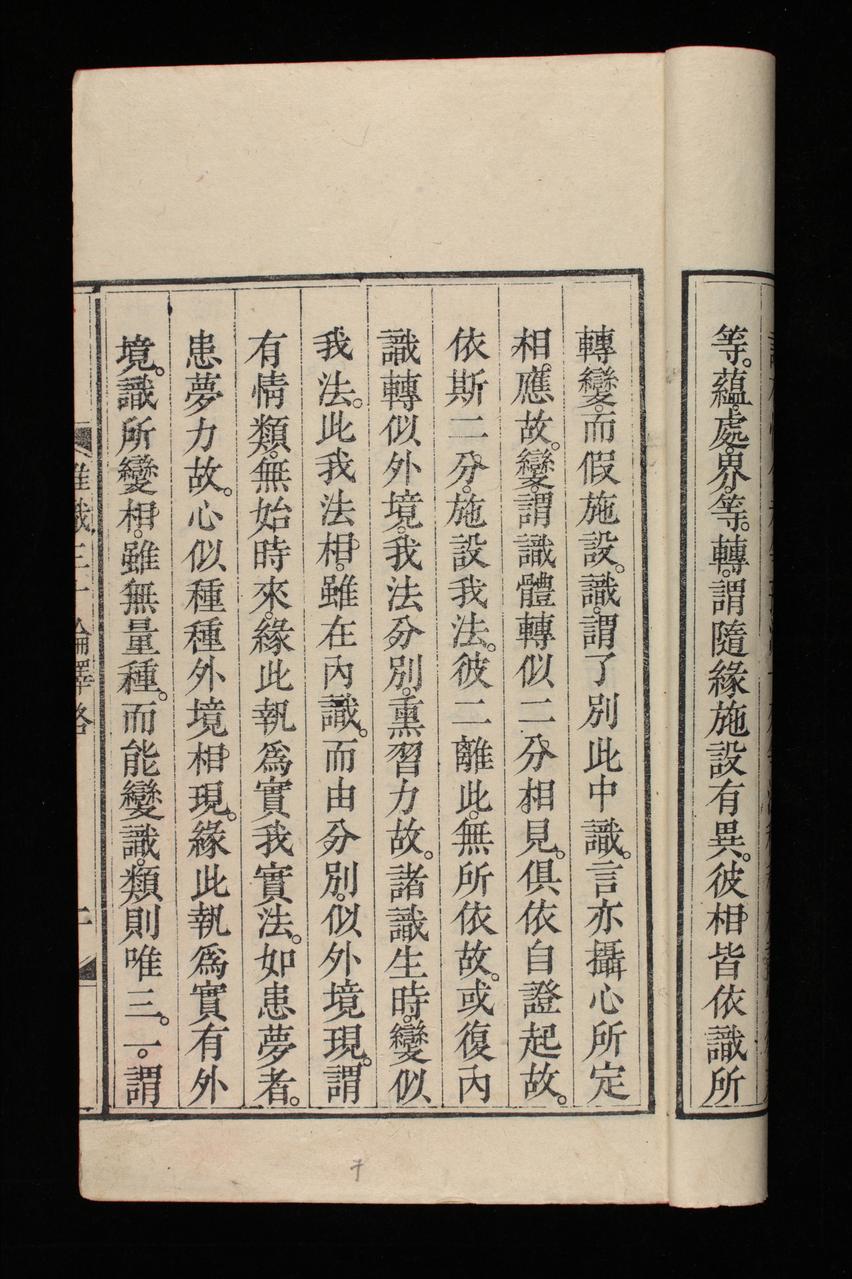 等。蘊處界等。轉。謂隨緣施設有異。彼相皆依識所
轉變。而假施設。識。謂了別此中識。言亦攝心所定
相應故。變。謂識體轉似二分。相見。俱依自證起故。
依斯二分。施設我法。彼二離此。無所依故。或復內
識轉似外境。我法分別。熏習力故。諸識生時。變似
我法。此我法相。雖在內識。而由分別。似外境現。謂
有情類。無始時來。緣此執爲實我實法。如患夢者。
患夢力故。心似種種外境相現。緣此執爲實有外
境。識所變相。雖無量種。而能變識。類則唯三。一。謂
唯識三十論釋略